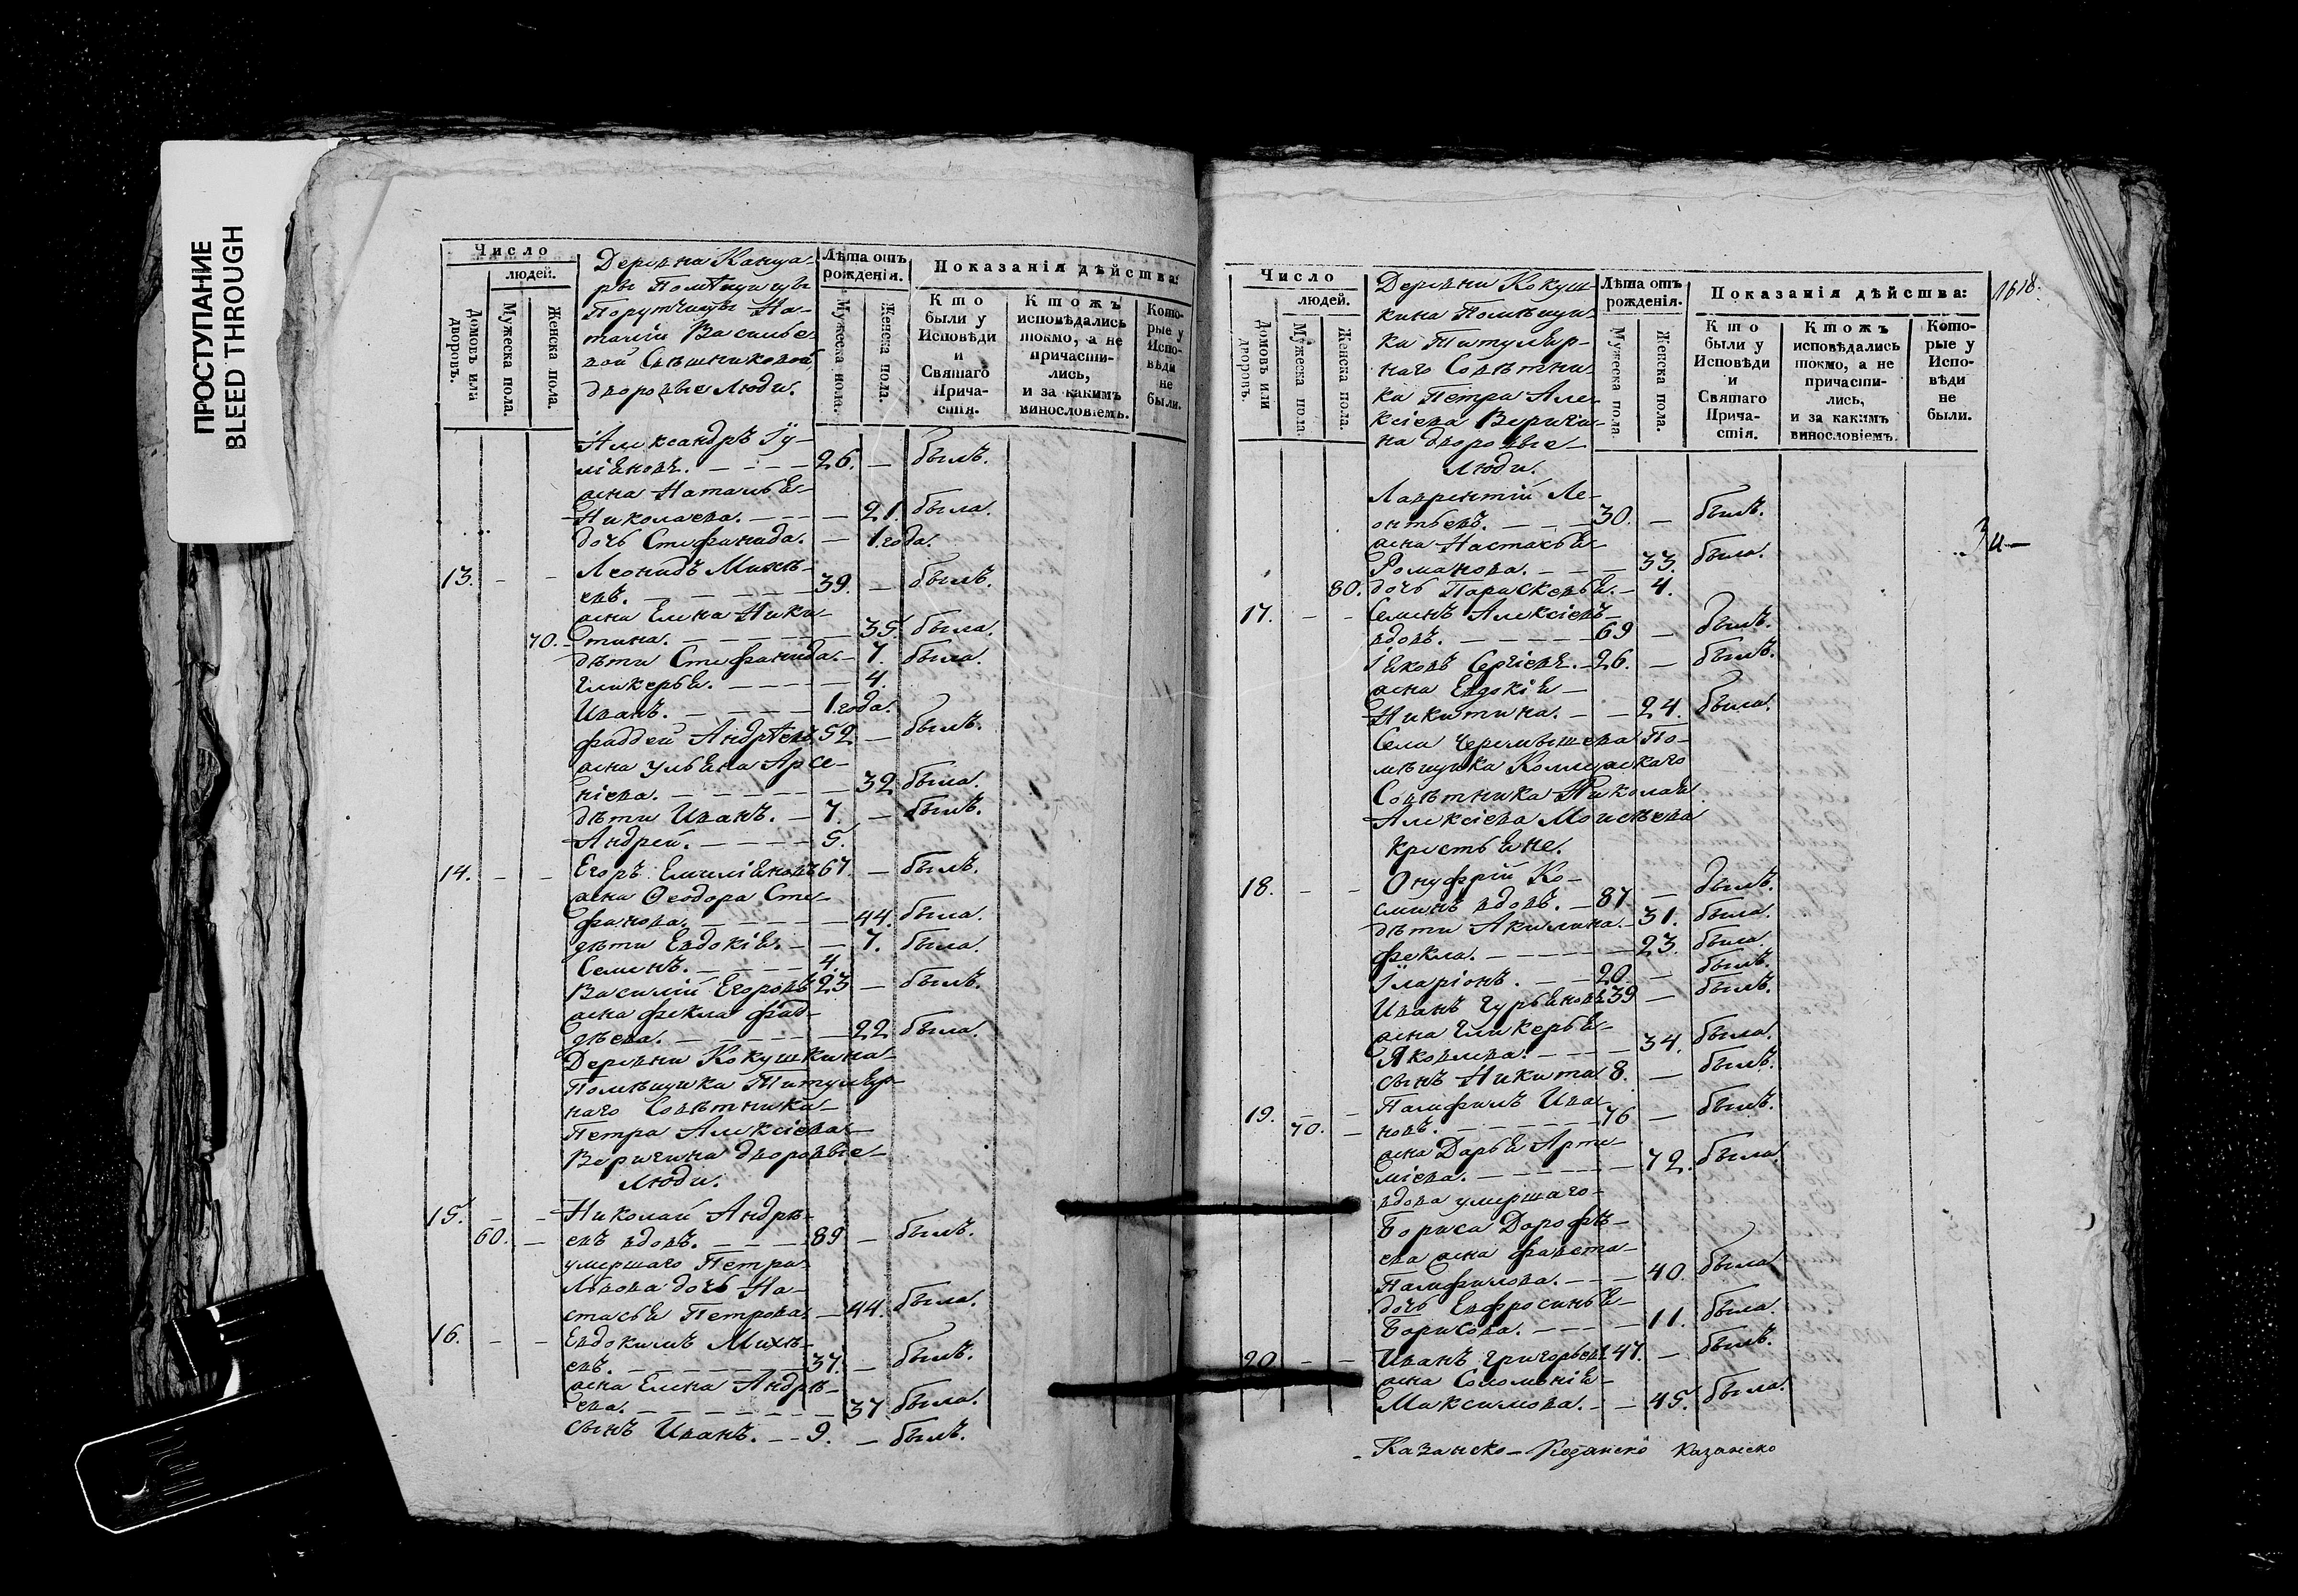 ПРОСТУПАНИЕ
BLEED THROUGH
Число
людей.
Домовъ или дворовъ.
Мужеска пола.
Женска пола.
Деревни Канца-
ры Помѣщицы
Порутчицы На-
таліи Василье-
вой Свѣшниковой,
дворовые Люди.
Лѣта отъ
рожденія.
Мужеска пола.
Женска пола.
Показанія дѣйства:
Кто
были у
Исповѣди
и
Святаго
Прича-
стія.
Ктожъ
исповѣдались
токмо, а не
причасти-
лись,
и за какимъ
винословіемъ.
Кото-
рые у
Испо-
вѣди
не
были.
Александръ Іу-
ліановъ. 26. — былъ.
жена Наталья
Николаева. — 21. была.
дочь Стефанида. — 1. года.
13. — — Леонидъ Михѣ-
евъ. 39. — былъ.
жена Елена Ники-
70. тина. — 35. была.
дѣти Стефанида. — 7. была.
Гликерья. — 4.
Иванъ. — 1. года.
Фаддей Андрѣевъ 52 — былъ.
жена Ульяна Арсе-
ніева. — 32 была.
дѣти Иванъ. — 7. — былъ.
Андрей. — 5.
14. — — Егоръ Емиліановъ 67. — былъ.
жена Ѳеодора Сте-
фанова. — 44. была.
дѣти Евдокія. — 7. была.
Семенъ. — 4.
Василій Егоровъ 23 — былъ.
жена Фекла Фад-
дѣева. — 22 была.
Деревни Кокушкина
Помѣщика Титуляр-
наго Совѣтника
Петра Алексіева
Веригина дворовые
Люди.
15. — — Николай Андрѣ-
60. — евъ вдовъ. — 89 — былъ.
умершаго Петра
Львова дочь На-
стасья Петрова. — 44. была.
16. — — Евдокимъ Михѣ-
евъ. — 37. — былъ.
жена Елена Андрѣ-
ева. — 37 была.
сынъ Иванъ. — 9. — былъ.
Число
людей.
Домовъ или дворовъ.
Мужеска пола.
Женска пола.
Деревни Кокуш-
кина Помѣщи-
ка Титуляр-
наго Совѣтни-
ка Петра Але-
ксіева Вериги-
на дворовые
Люди.
Лѣта отъ
рожденія.
Мужеска пола.
Женска пола.
Показанія дѣйства:
Кто
были у
Исповѣди
и
Святаго
Прича-
стія.
Ктожъ
исповѣдались
токмо, а не
причасти-
лись,
и за какимъ
винословіемъ.
Кото-
рые у
Испо-
вѣди
не
были.
1618.
Лаврентій Ле-
онтьевъ. — 30. — былъ.
жена Настасья
Романова. — 33. была.
80. дочь Параскевья. — 4.
17. — — Семенъ Алексіевъ
вдовъ. — 69 — былъ.
Іяковъ Сергіевъ. — 26. — былъ.
жена Евдокія
Никитина. — 24. была.
Села Чернышева По-
мѣщика Коллежскаго
Совѣтника Николая
Алексіева Моисѣева
крестьяне.
18. — — Онуфрій Ко-
синъ вдовъ. — 87 — былъ.
дѣти Акилина. — 31. была.
Фекла. — 23. была.
Іларіонъ. — 20. — былъ.
Иванъ Гурьяновъ 39 — былъ.
жена Гликерья
Яковлева. — 34. была.
сынъ Никита 8. — былъ.
19. — — Памфилъ Ива-
70. — новъ. — 76 — былъ.
жена Дарья Арте-
міева. — 72. была.
вдова умершаго
Бориса Дорофѣ-
ева жена Фавста
Памфилова. — 40. была.
дочь Евфросинья
Борисова. — 11. была.
20. — — Иванъ Григорьевъ 47. — былъ.
жена Соломонія
Максимова. — 45. была.
Казанско — Казанско Казанско